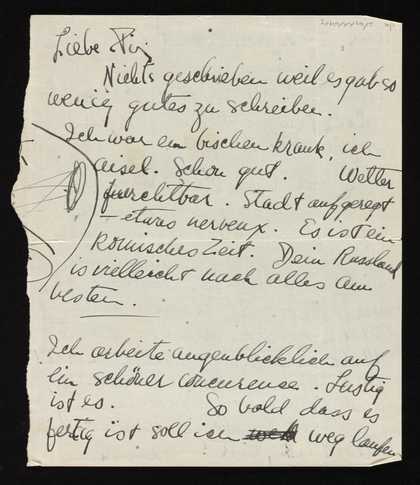 Liebe
Nichts geschrieben weil es gab so
wenig gutes zu schreiben.
Ich war ein bischen krank, ich
Schon gut. Wetter
furchtbar. Stadt aufgeregt
– etwas nerveux. Es ist ein
Komisches Zeit. Dein Russland
is vielleicht nach alles am
besten.
Ich arbeite augenblicklich auf
ein schöner concurense. Lustig
ist es. So bald dass es
fertig ist soll ich weg laufen